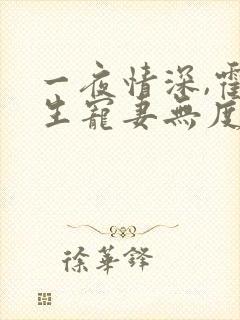 一夜情深,霍
生寵妻無度
徐華鋒